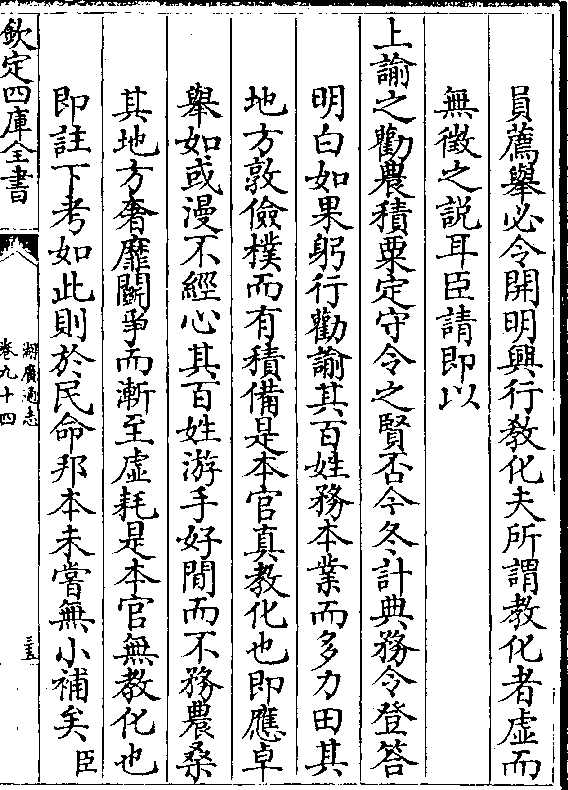 員薦舉必令開明興行教化夫所謂教化者虛而
無徴之説耳臣請即以
上諭之勸農積粟定守令之賢否今冬計典務令登答
明白如果躬行勸諭其百姓務本業而多力田其
地方敦儉樸而有積備是本官真教化也即應卓
舉如或漫不經心其百姓游手好閒而不務農桑
其地方奢靡鬭爭而漸至虛耗是本官無教化也
即註下考如此則於民命邦本未嘗無小補矣臣
欽定四庫全書
湖廣通志
卷九十四
三五